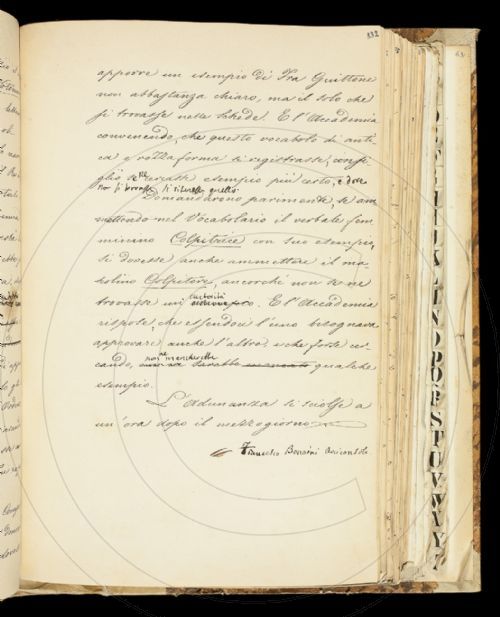 332
apporre un esempio di Fra Guittone
non abbastanza chiaro, ma il solo che
si trovasse nelle schede. E l'Accademia
convenendo, che questo vocabolo di anti-
ca e rozza forma si registrasse, consi-
gliò se ne cercasse esempio più certo, e dove
non si trovasse si ritenesse quello.
Domandarono parimente, se am-
mettendo nel Vocabolario il verbale fem-
minino Colpitrice con suo esempio,
si dovesse anche ammettere il ma-
scolino Colpitore, ancorchè non se ne
trovasse un' autorità. E l'Accademia
rispose, che essendovi l'uno bisognava
approvare anche l'altro, e che forse cer-
cando, non ne mancherebbe qualche
esempio.
L'Adunanza si sciolse a
un'ora dopo il mezzogiorno.
Francesco Bonaini Arciconsolo